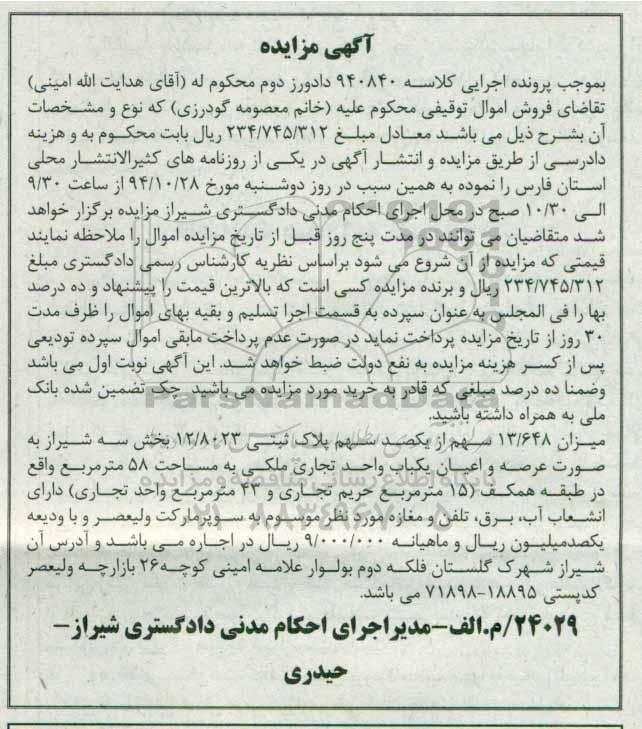 آگهی مزایده
بموجب پرونده اجرایی کلاسه ۹۴۰۸۴۰ دادورز دوم محکوم له (آقای هدایت الله امینی)
تقاضای فروش اموال توقیفی محکوم علیه (خانم معصومه گودرزی) که نوع و مشخصات
آن بشرح ذیل می باشد معادل مبلغ ۲۳۴/۷۴۵/۳۱۲ ریال بابت محکوم به و هزینه
دادرسی از طریق مزایده و انتشار آگهی در یکی از روزنامه های کثیرالانتشار محلی
استان فارس را نموده به همین سبب در روز دوشنبه مورخ ۹۴/۱۰/۲۸ از ساعت ۹/۳۰
الی ۱۰/۳۰ صبح در محل اجرای احکام مدنی دادگستری شیراز مزایده برگزار خواهد
شد متقاضیان می توانند در مدت پنج روز قبل از تاریخ مزایده اموال را ملاحظه نمایند
قیمتی که مزایده از آن شروع می شود براساس نظریه کارشناس رسمی دادگستری مبلغ
۲۳۴/۷۴۵/۳۱۲ ریال و برنده مزایده کسی است که بالاترین قیمت را پیشنهاد و ده درصد
بها را فی المجلس به عنوان سپرده به قسمت اجرا تسلیم و بقیه بهای اموال را ظرف مدت
۳۰ روز از تاریخ مزایده پرداخت نماید در صورت عدم پرداخت مابقی اموال سپرده تودیعی
پس از کسر هزینه مزایده به نفع دولت ضبط خواهد شد. این آگهی نوبت اول می باشد
وضمنا ده درصد مبلغی که قادر به خرید مورد مزایده می باشید چک تضمین شده بانک
ملی به همراه داشته باشید.
میزان ۱۳/۶۴۸ سهم از یکصد سهم پلاک ثبتی ۱۲/۸۰۲۳ بخش سه شیراز به
صورت عرصه و اعیان یکباب واحد تجاری ملکی به مساحت ۵۸ مترمربع واقع
در طبقه همکف (۱۵ مترمربع حریم تجاری و ۴۳ مترمربع واحد تجاری) دارای
انشعاب آب، برق، تلفن و مغازه مورد نظر موسوم به سوپرمارکت ولیعصر و با ودیعه
یکصدمیلیون ریال و ماهیانه ۹/۰۰۰/۰۰۰ ریال در اجاره می باشد و آدرس آن
شیراز شهرک گلستان فلکه دوم بولوار علامه امینی کوچه۲۶ بازارچه ولیعصر
کدپستی ۱۸۸۹۵-۷۱۸۹۸ می باشد.
۲۴۰۲۹/م.الف-مدیراجرای احکام مدنی دادگستری شیراز-
حیدری
ParsNamadData